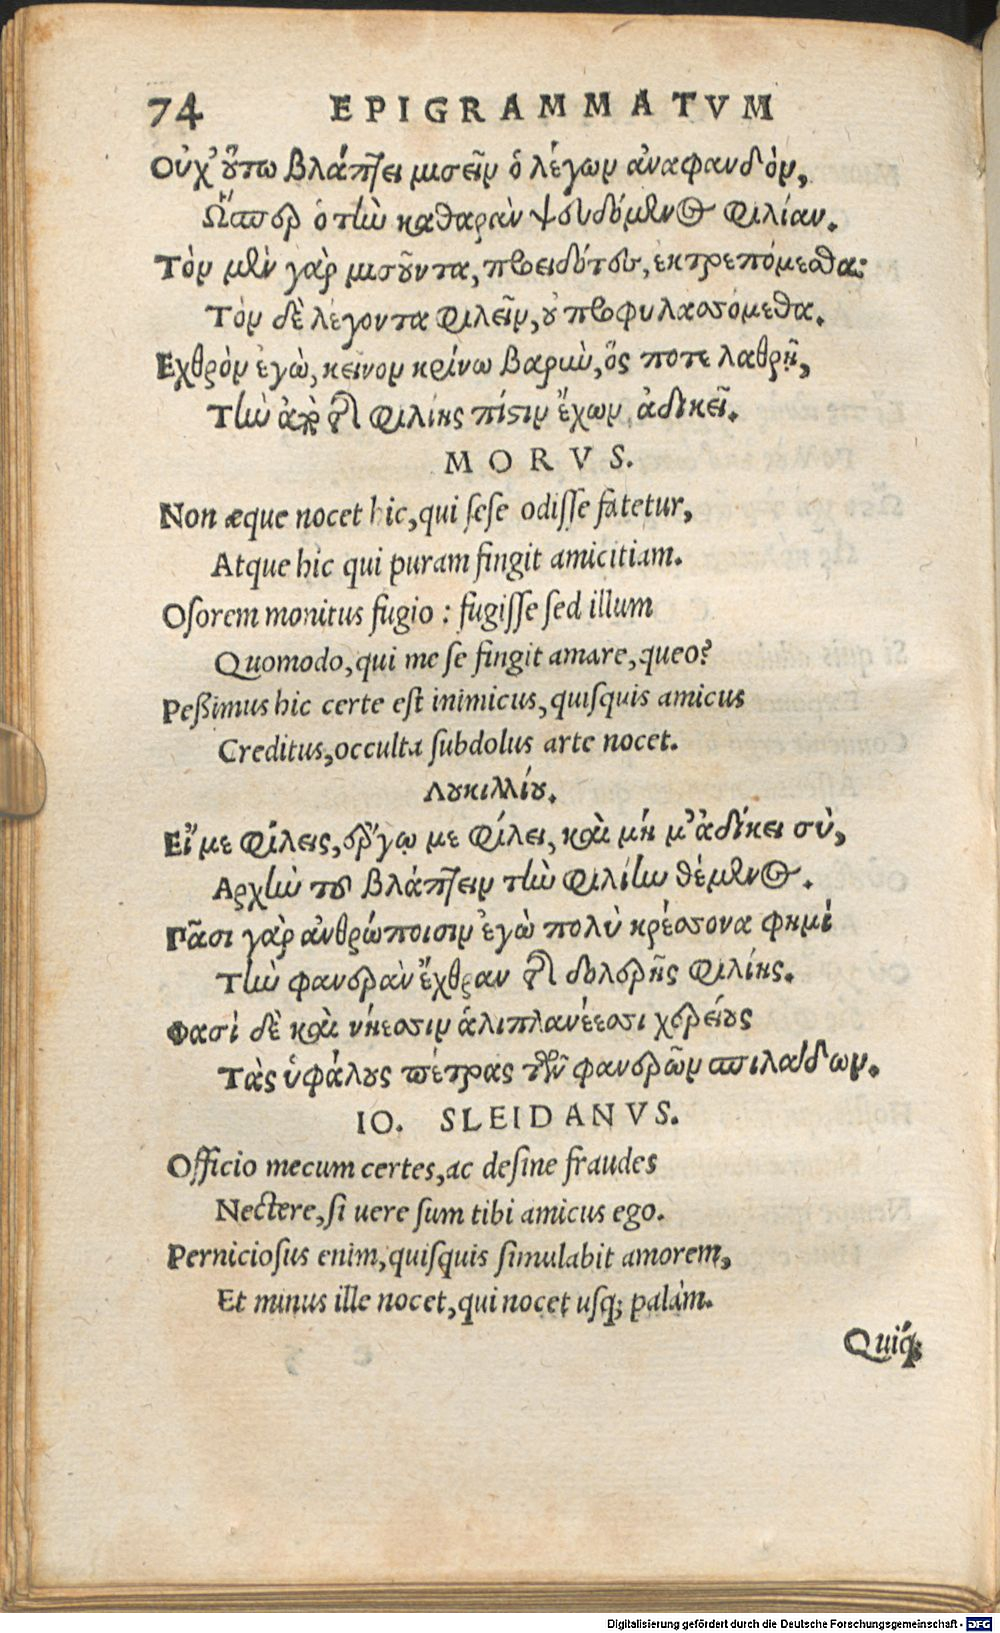 74 EPIGRAMMATVM
Οὐχ' οὕτω βλάπτει μισεῖν ὁ λέγων ἀναφανδὸν,
Ὥσπερ ὁ τὴν καθαρὰν ψευδόμενος φιλίαν.
Τὸν μὲν γὰρ μισοῦντα, προειδότες, ἐκτρεπόμεσθα:
Τὸν δὲ λέγοντα φιλεῖν, οὐ προφυλασσόμεθα.
Εχθρὸν ἐγὼ, κεῖνον κρίνω βαρὺν, ὅς ποτε λαθρῇ,
Τὴν ἀπὸ τῆς φιλίης πίστιν ἔχων, ἀδικεῖ.
MORVS.
Non æque nocet hic, qui ſeſe odiſſe fatetur,
Atque hic qui puram fingit amicitiam.
Oſorem monitus fugio: fugiſſe ſed illum
Quomodo, qui me ſe fingit amare, queo?
Peßimus hic certe eſt inimicus, quiſquis amicus
Creditus, occulta ſubdolus arte nocet.
Λουκιλλίου.
Εἴ με φίλεις, ἔργῳ με φίλει, καὶ μή μ' ἀδίκει σὺ,
Αρχὴν τοῦ βλάπτειν τὴν φιλίην θέμενος.
Πᾶσι γὰρ ἀνθρώποισιν ἐγὼ πολὺ κρέσσονα φημὶ
Τὴν φανερὰν ἔχθραν τῆς δολερῆς φιλίης.
Φασὶ δὲ καὶ νήεσσιν ἁλιπλανέεσσι χερείους
Τὰς ὑφάλους πέτρας τῶν φανερῶν σπιλάδων.
IO. SLEIDANVS.
Officio mecum certes, ac deſine fraudes
Nectere, ſi uere ſum tibi amicus ego.
Pernicioſus enim, quiſquis ſimulabit amorem,
Et minus ille nocet, qui nocet uſq; palàm.
Quiq́;
Digitalisierung gefördert durch die Deutsche Forschungsgemeinschaft - DFG